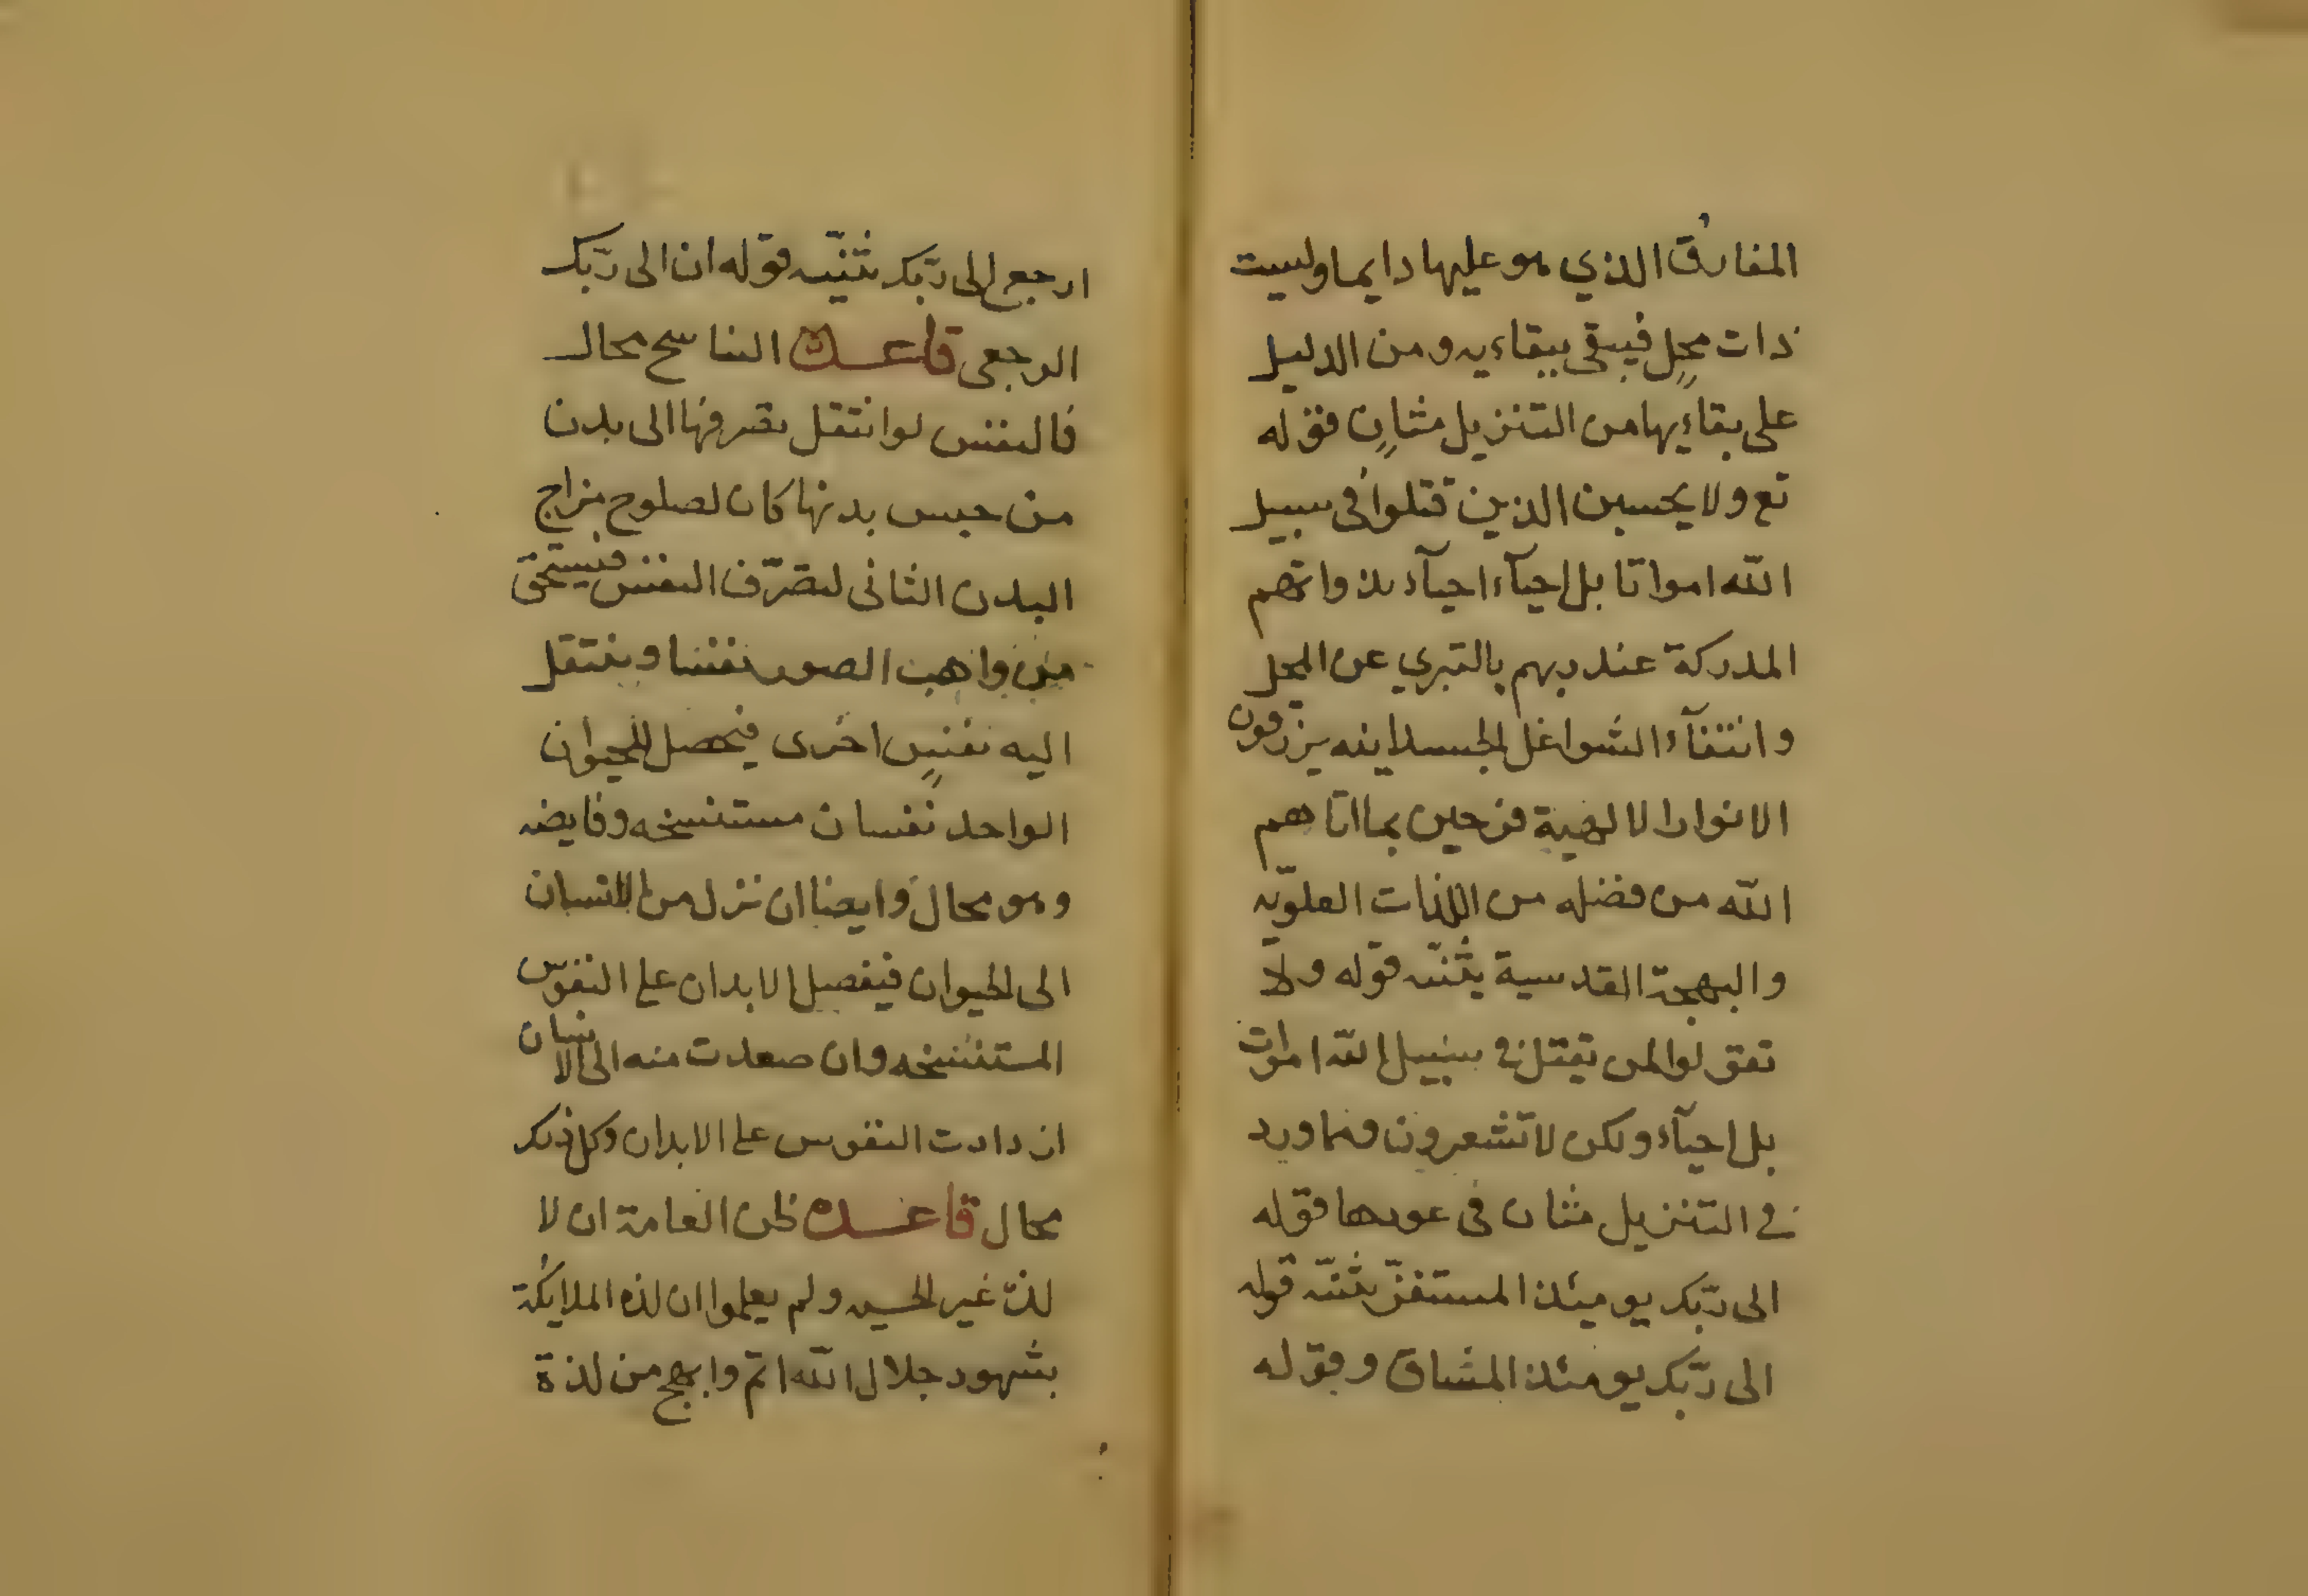 المفارق الذي هو عليها دايما وليست
ذات محل فيبقى ببقاءيه ومن الدليل
على بقاءيها من التنزيل مثانٍ فقوله
تع ولا يحسبن الذين قتلوا فى سبيل
الله امواتا بل احيآء احيآء بذواتهم
المدركة عند ربهم بالتبري عن المحل
وانتفآء الشواغل الجسداينه يرزقون
الانوار الالهية فرحين بما اتاهم
الله من فضله من اللذات العلويّه
والبهجة القدسية يثنّيه قوله ولا
تقولوا لمن يقتل فى سبيل الله اموات
بل احيآء ولكن لا تشعرون ومما ورد
فى التنزيل مثان فى عودها فقوله
الى ربّك يومئذ المستقرّ يثنّيه قوله
الى ربّك يومئذ المساق وقوله
ارجع الى ربّك يثنّيه قوله ان الى ربّك
الرجعى قاعدة التناسخ محال
فالنفس لو انتقل تصرفها الى بدن
من جنس بدنها كان لصلوح مزاج
البدن الثانى لتصرّف النفس فيستحق
من واهب الصور نفسا وينتقل
اليه نفس اخرى فيحصل للحيوان
الواحد نفسان مستنسخه وفايضه
وهو محال وايضا ان نزل من الانسان
الى الحيوان فيفصل الابدان على النفوس
المستنسخه وان صعدت منه الى الانسان
ازدادت النفوس على الابدان وكل ذلك
محال قاعده ظن العامة ان لا
لذة غير الحسيه ولم يعلموا ان لذه الملايكة
بشهود جلال الله اتم وابهج من لذة